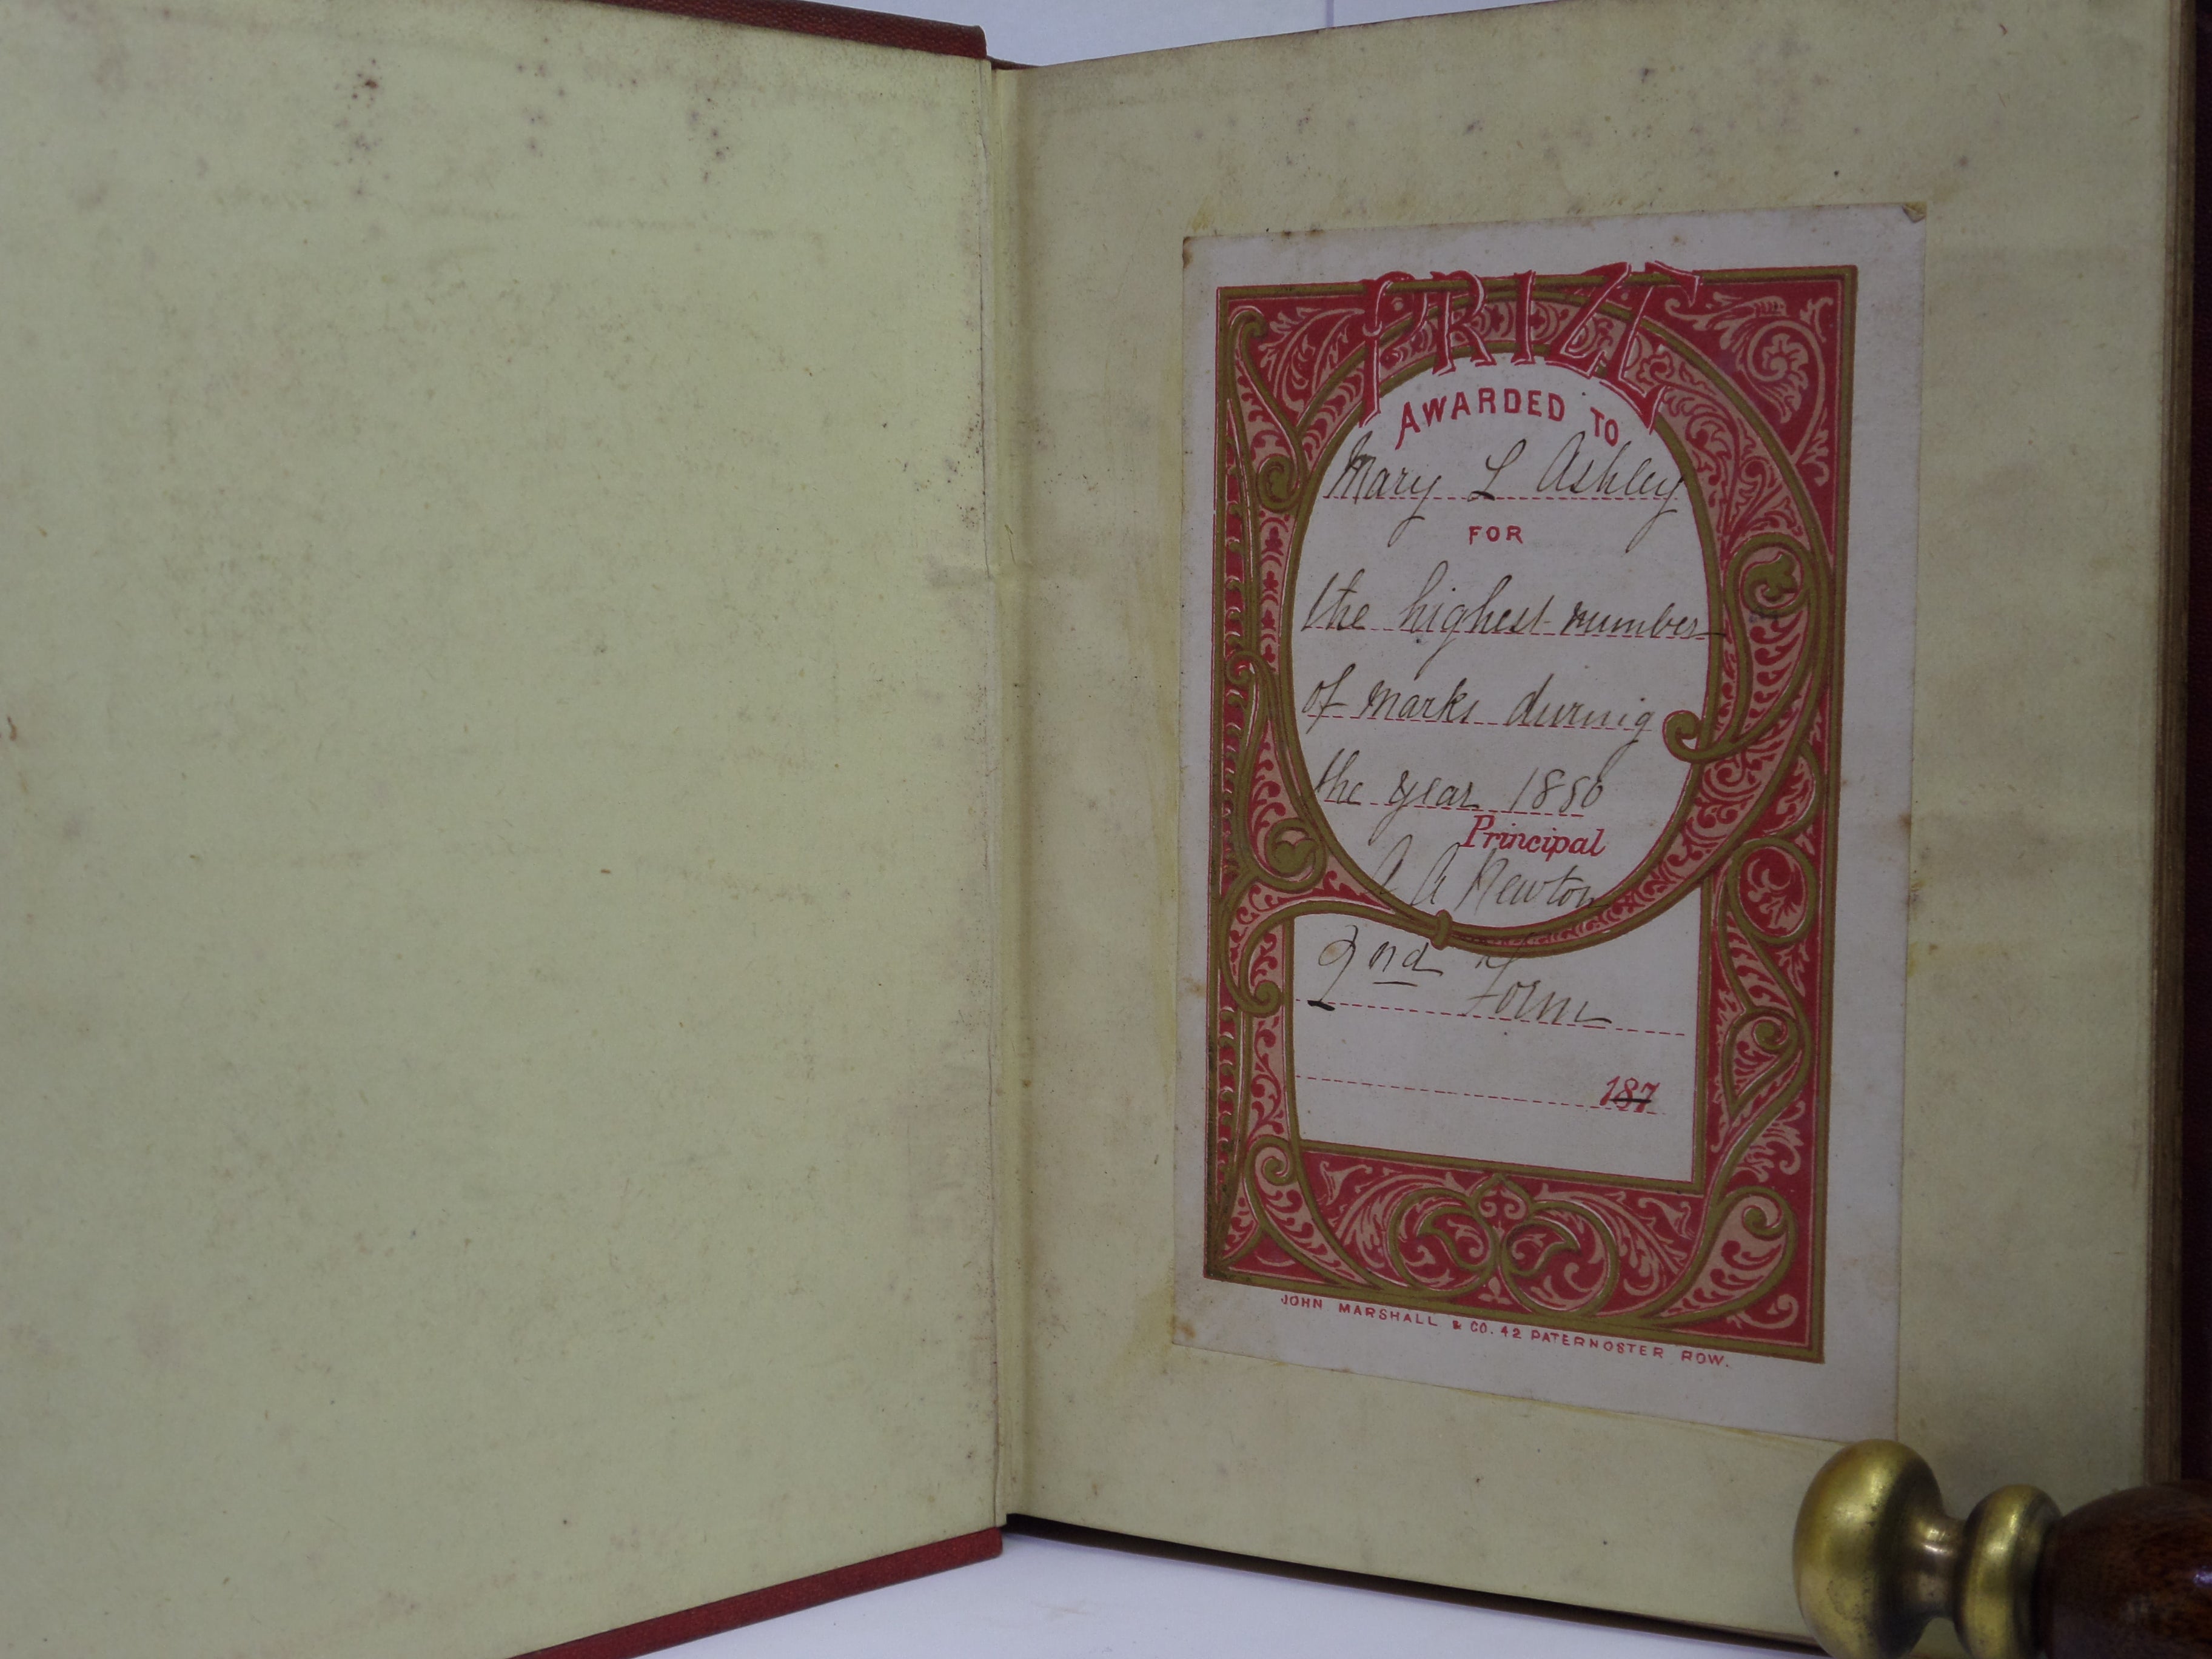 PRIZE
AWARDED TO
Mary L Ashley
FOR
the highest number
of marks during
the year 1880
Principal
A A Newton
2nd Form
187
JOHN MARSHALL & CO. 42 PATERNOSTER ROW.